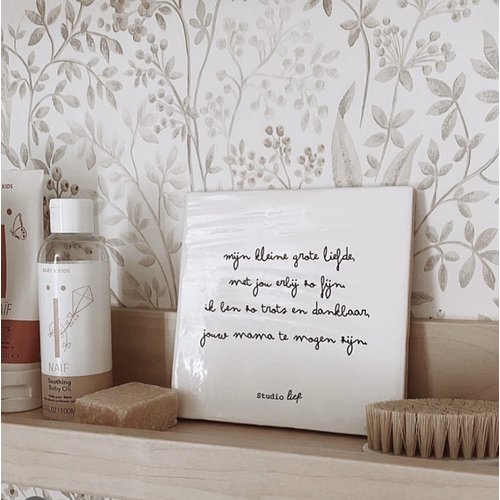 mijn kleine grote liefde,
met jou erbij zo fijn.
ik ben zo trots en dankbaar,
jouw mama te mogen zijn.
Studio lief
BABY & KIDS
NAIF
Soothing
Baby Oil
KIDS
AIF